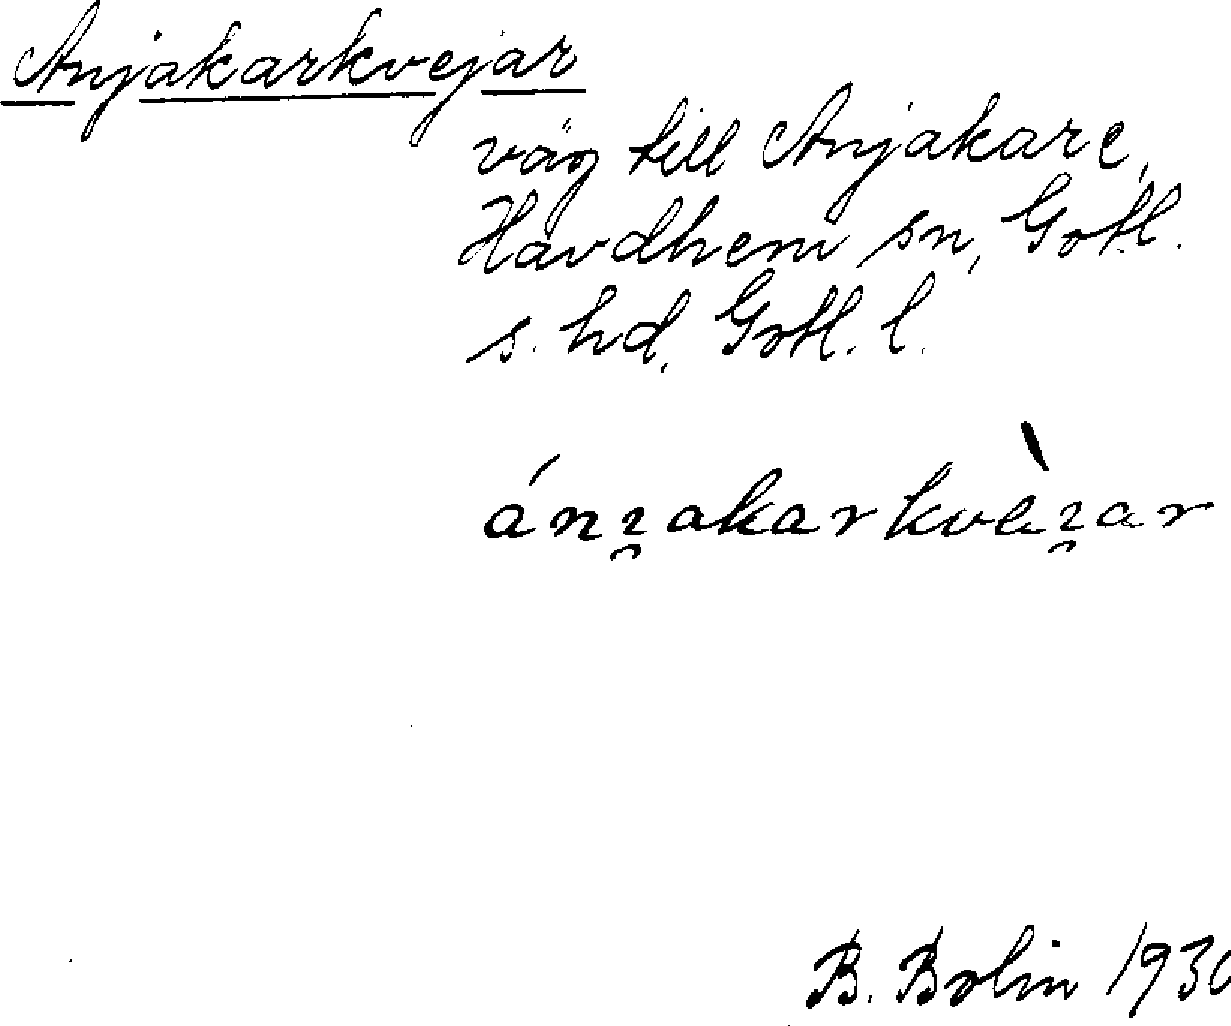 Anjakarkvejar
väg till Anjakare,
Havdhem sn, Gotl.
s. hd, Gotl. l.
B. Bolin 1930